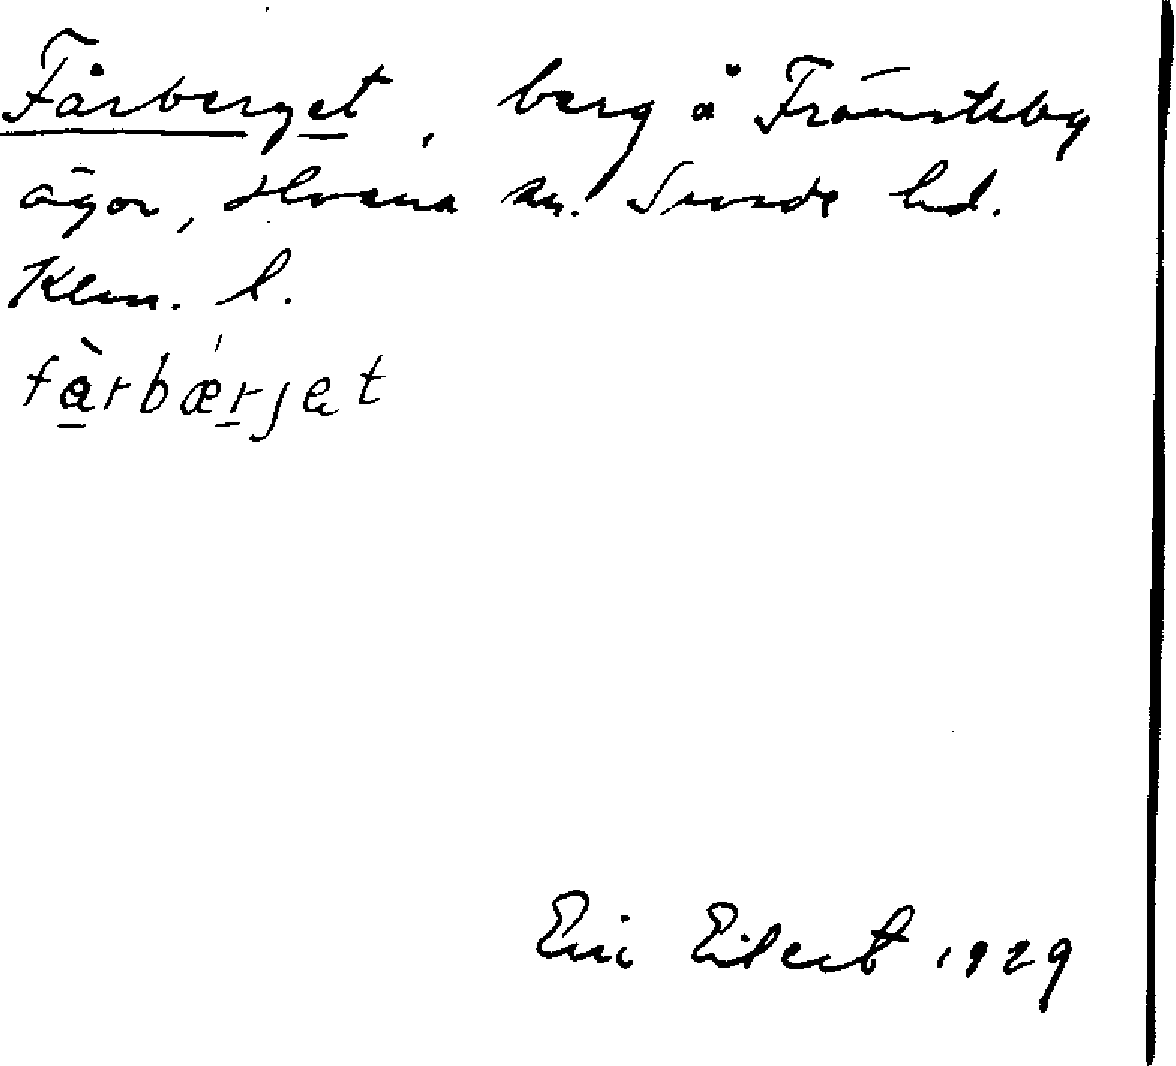 Fårberget, berg å Främsteby
ägor, Hvena sn. Sevede hd.
Kalm. l.
få̱̀rbǽṟjet
Eric Eilert 1929